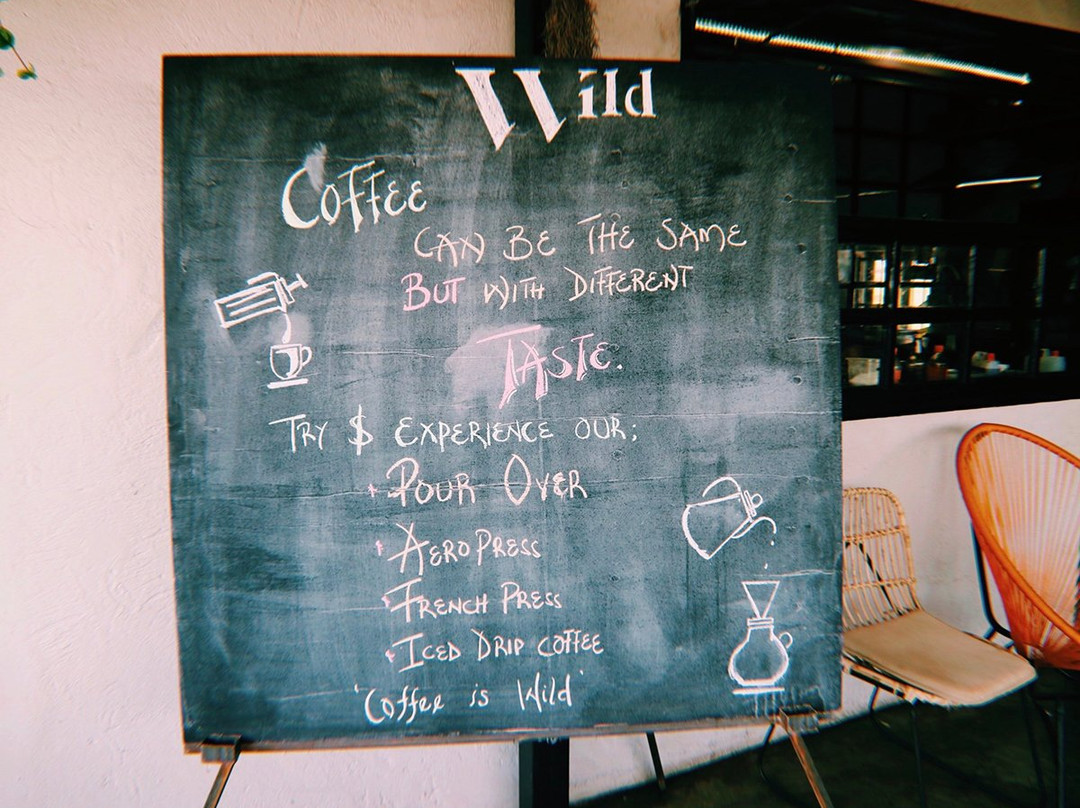 Wild
COFFEE
CAN BE THE SAME
BUT WITH DIFFERENT
TASTE.
TRY $ EXPERIENCE OUR;
POUR OVER
AEROPRESS
FRENCH PRESS
ICED DRIP COFFEE
'Coffee is Wild'